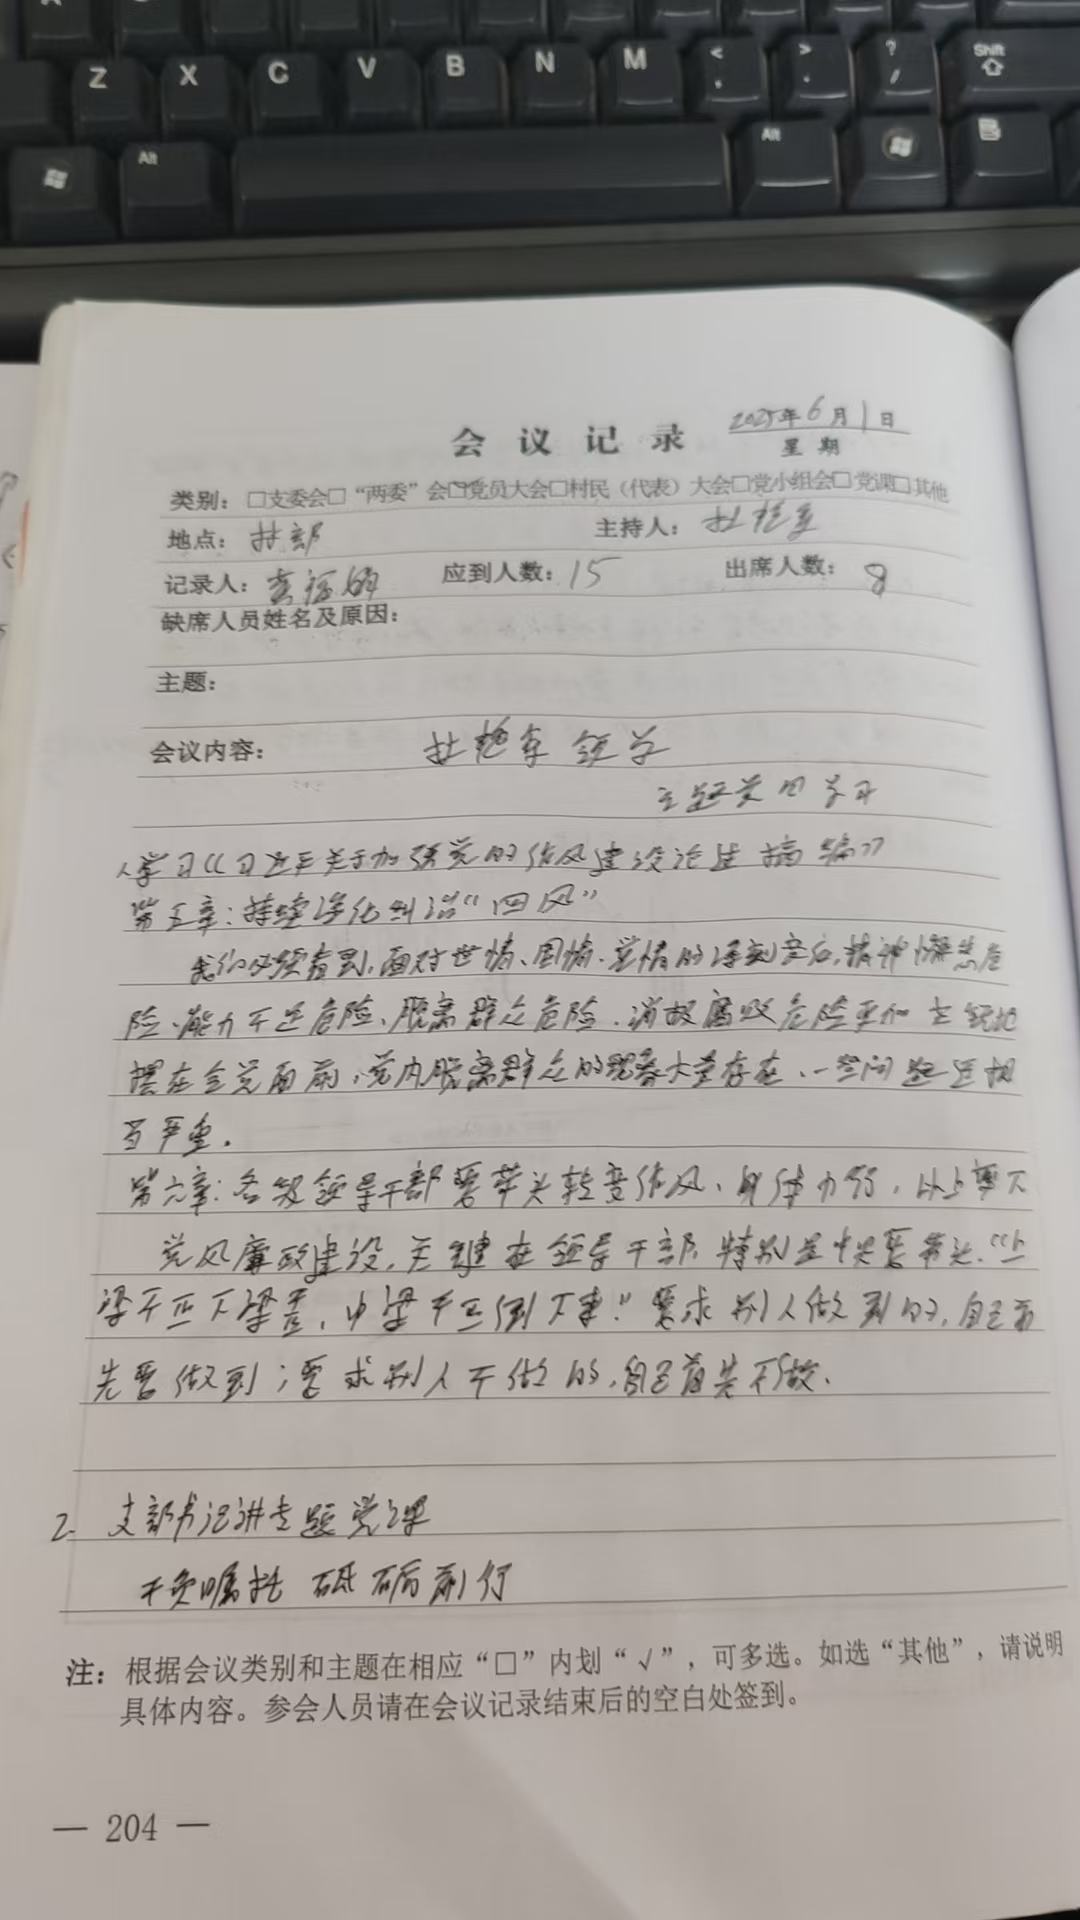 Z X C V B N M < , > . ? / Shift
Alt Alt
会议记录 2025年6月1日
星期
类别：□支委会□“两委”会□党员大会□村民（代表）大会□党小组会□党课□其他
地点：村部 主持人：杜艳
记录人： 应到人数：15 出席人数：8
缺席人员姓名及原因：
主题：
会议内容：杜艳 领学
主题党日学习
1、学习《习近平关于加强党的作风建设论述摘编》
第五章：持续深化纠治“四风”
我们必须看到，面对世情、国情、党情的深刻变化，精神懈怠危
险、能力不足危险、脱离群众危险、消极腐败危险更加尖锐地
摆在全党面前，党内脱离群众的现象大量存在，一些问题还相
当严重。
第六章：各级领导干部要带头转变作风，身体力行，以上率下
党风廉政建设，关键在领导干部，特别是中央要带头。“上
梁不正下梁歪，中梁不正倒下来。”要求别人做到的，自己首
先要做到；要求别人不做的，自己首先不做。
2. 支部书记讲专题党课
不负嘱托 砥砺前行
注：根据会议类别和主题在相应“□”内划“√”，可多选。如选“其他”，请说明
具体内容。参会人员请在会议记录结束后的空白处签到。
— 204 —